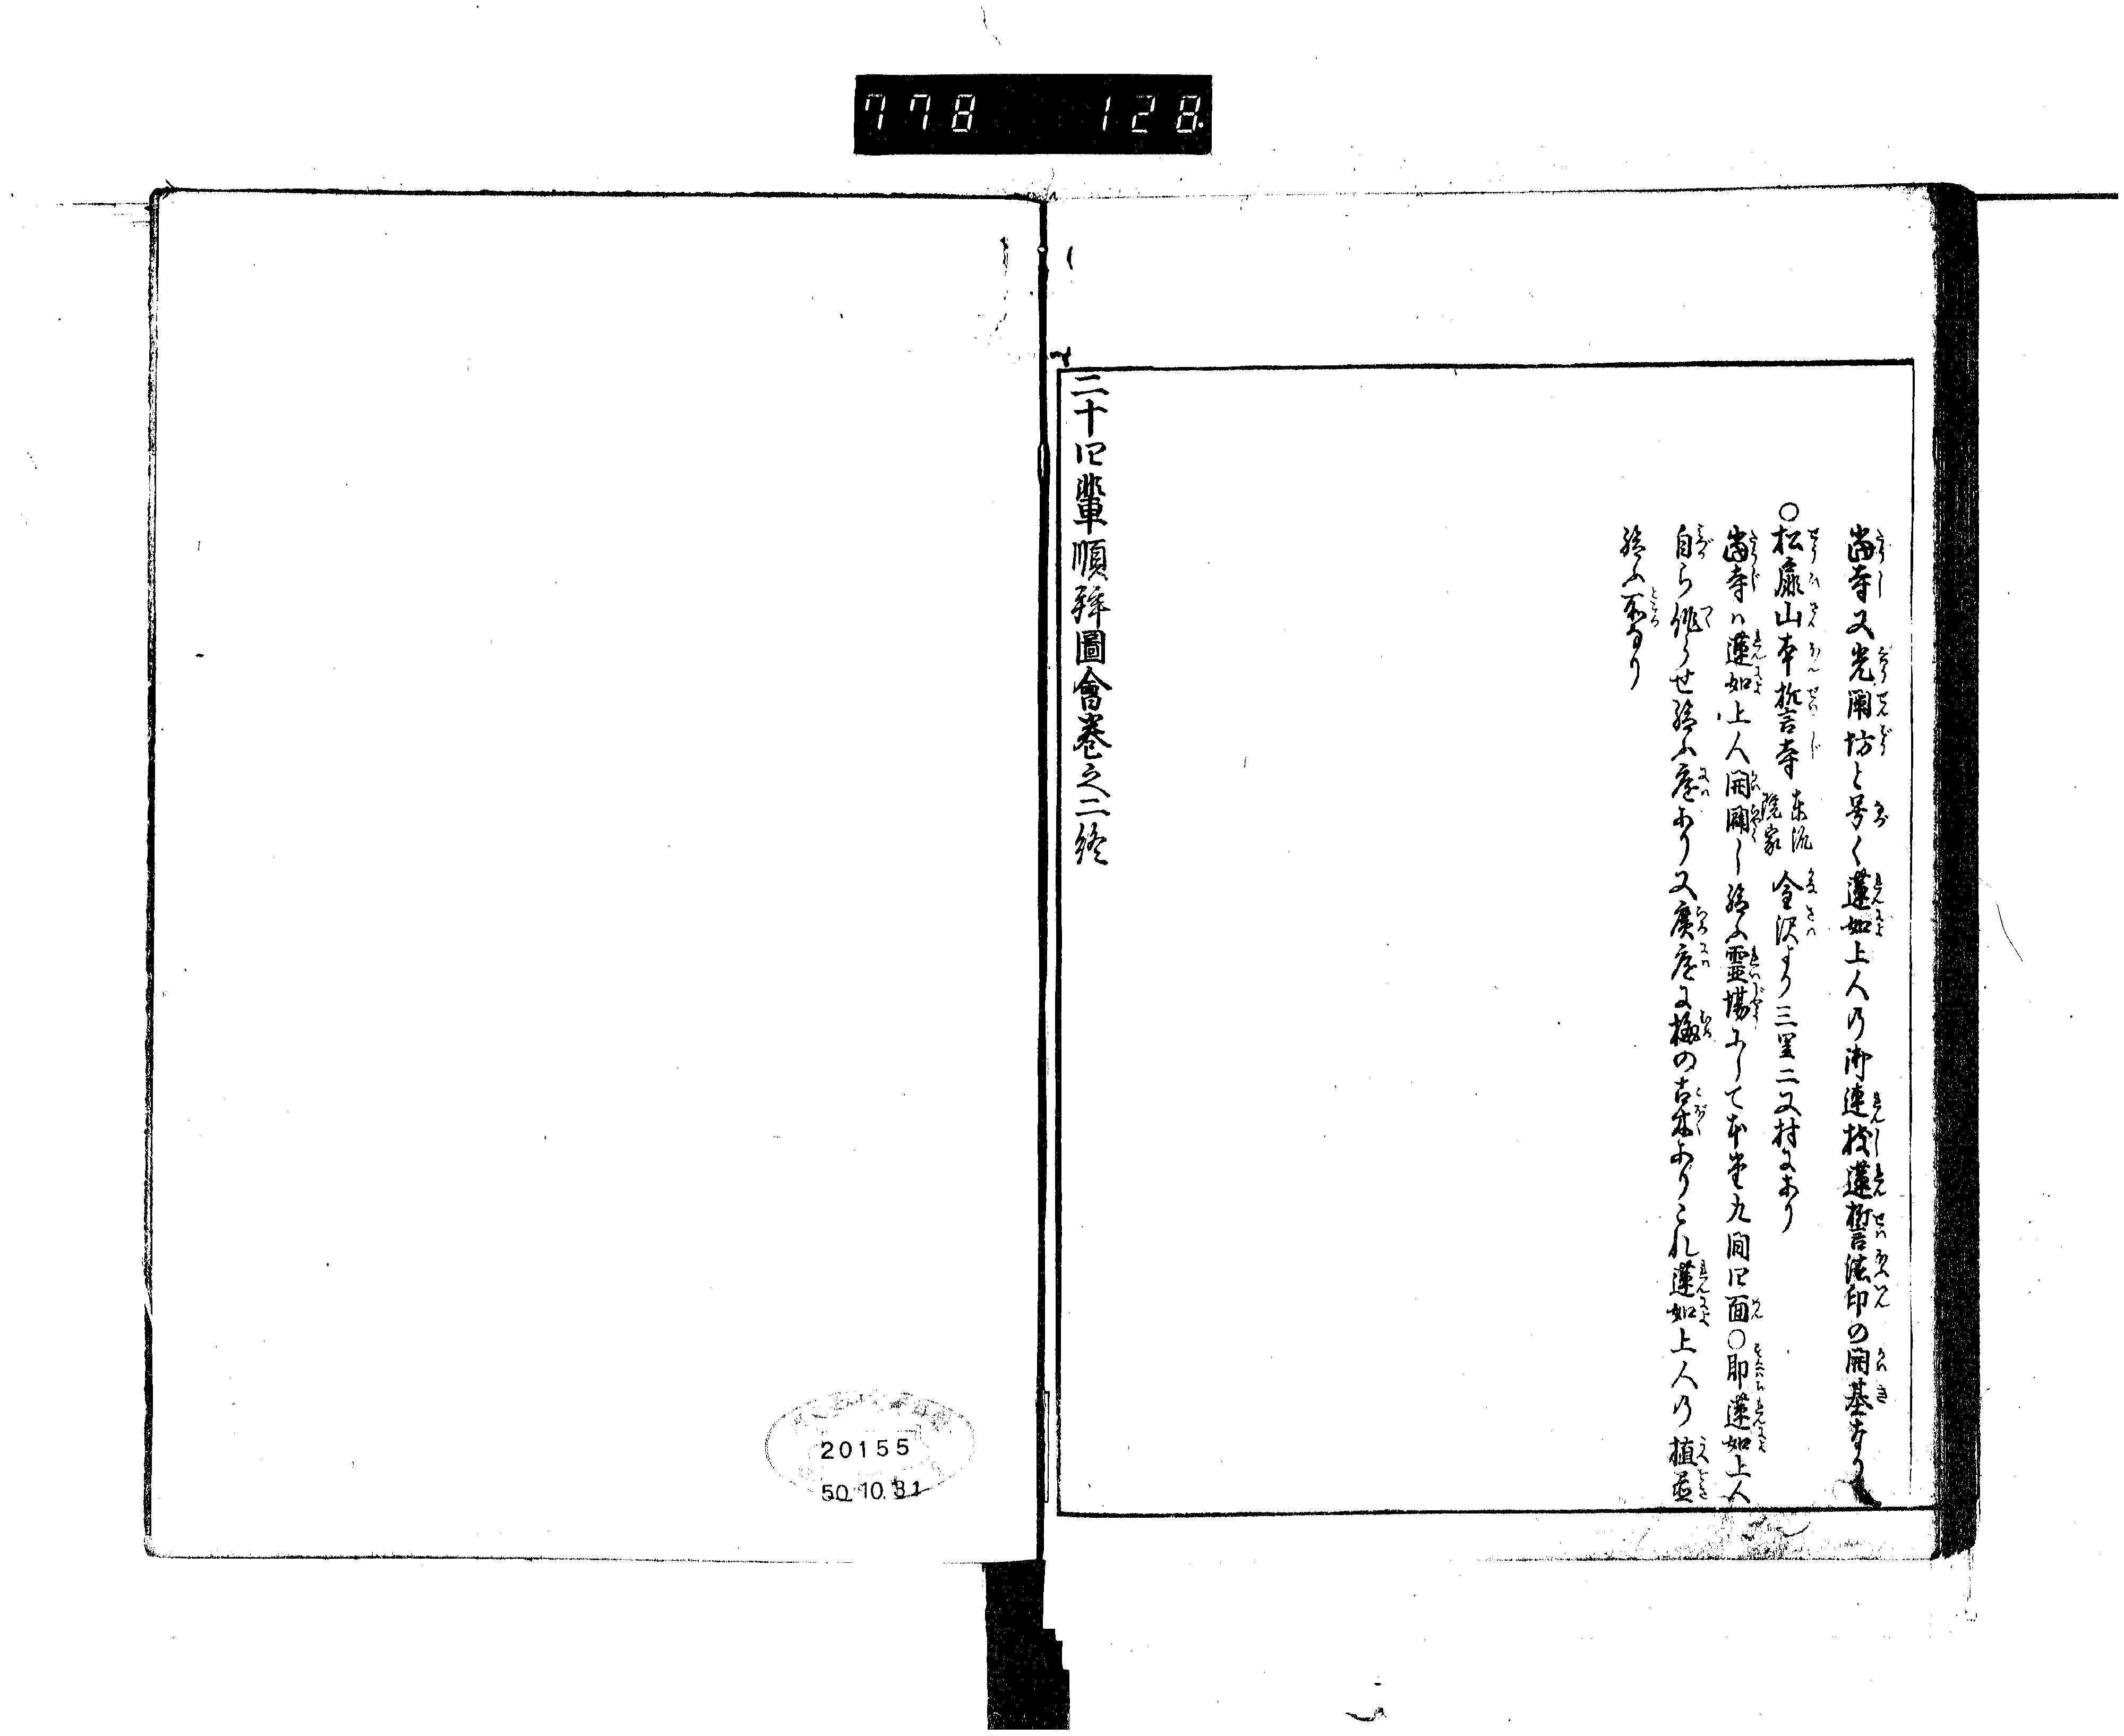 778 128
當寺又光闡坊と号く蓮如上人の御連枝蓮誓法印の開基なり
○松扉山本誓寺 東派院家 金沢より三里二又村にあり
當寺ハ蓮如上人開闢し給ふ霊場にして本堂九間四面○即蓮如上人
自ら作らせ給ふ庭あり又廣庭に梅の古木ありこれ蓮如上人の植置
給ふ所なり
二十四輩順拜圖會巻之二終
20155
50.10.31